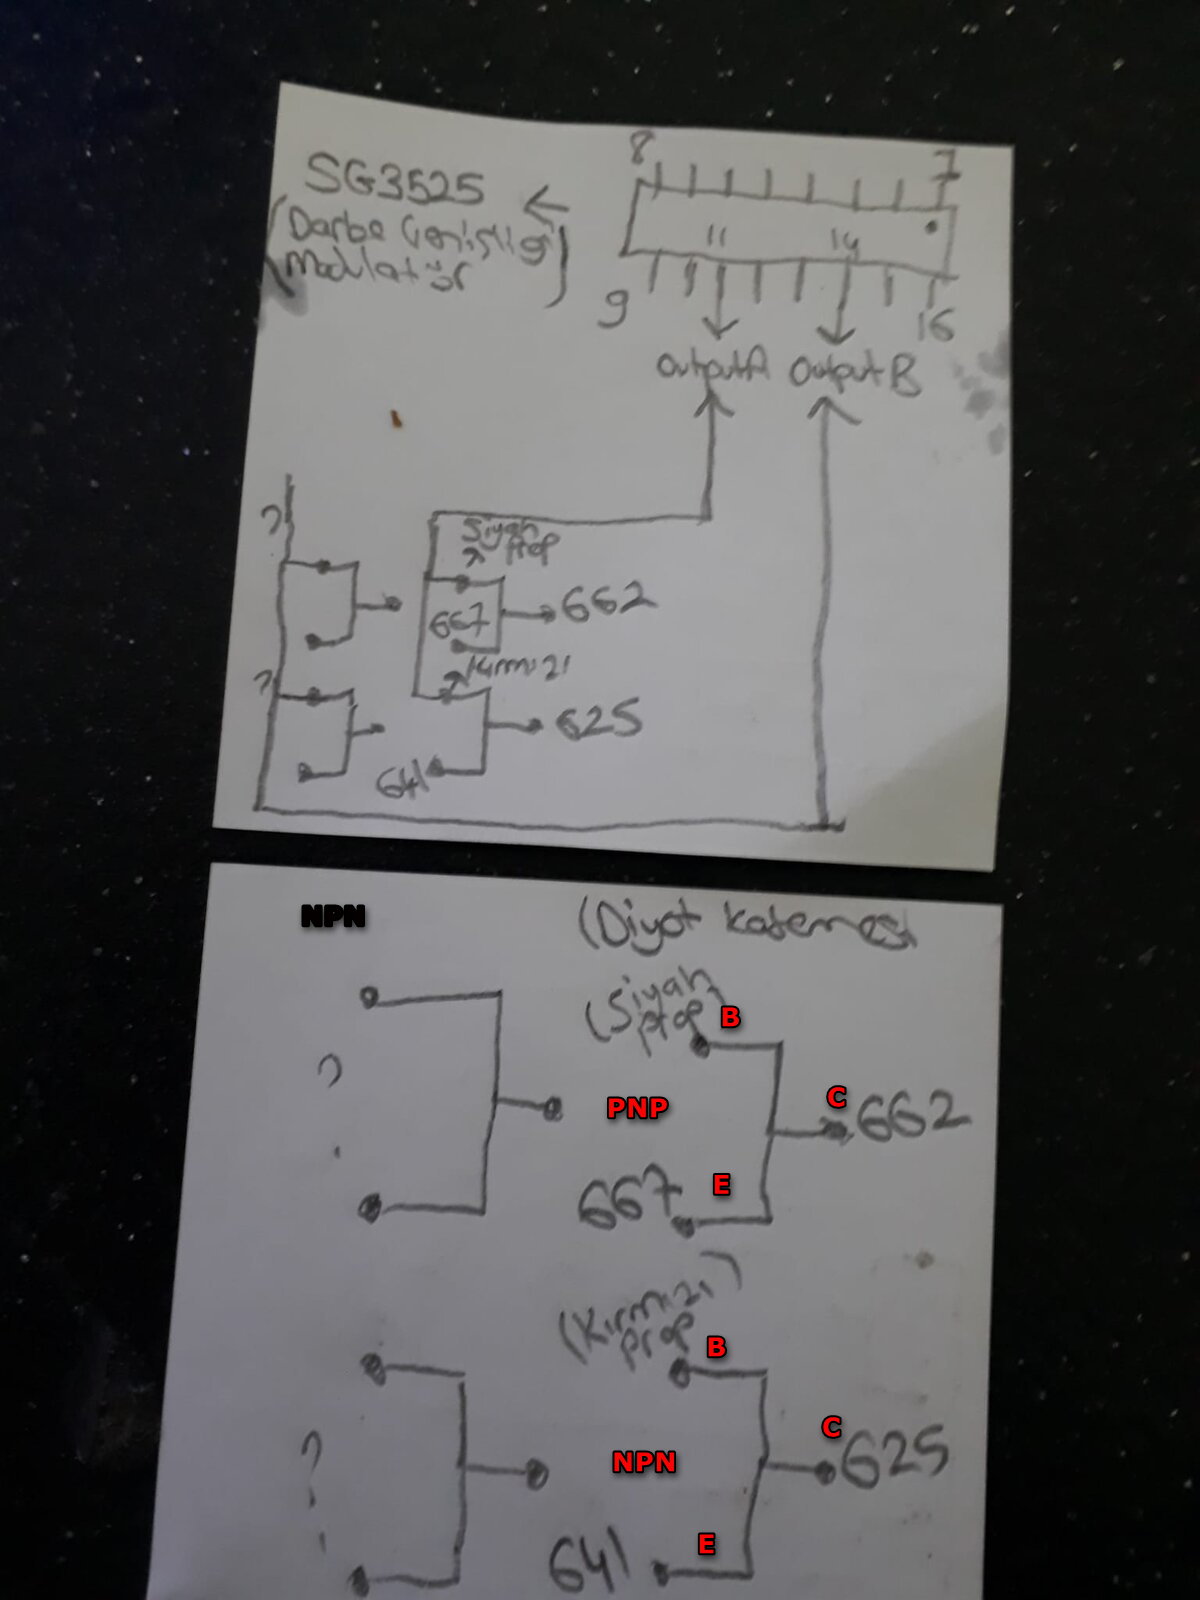 SG3525
(Darbe Genişliği
Modülatör)
8
7
11
14
9
16
OutputA
OutputB
?
Siyah
Prop
667
662
?
Kırmızı
625
641
NPN
(Diyot Kademesi
(Siyah
prop
B
?
PNP
C
662
667
E
(Kırmızı)
prop
B
?
NPN
C
625
641
E